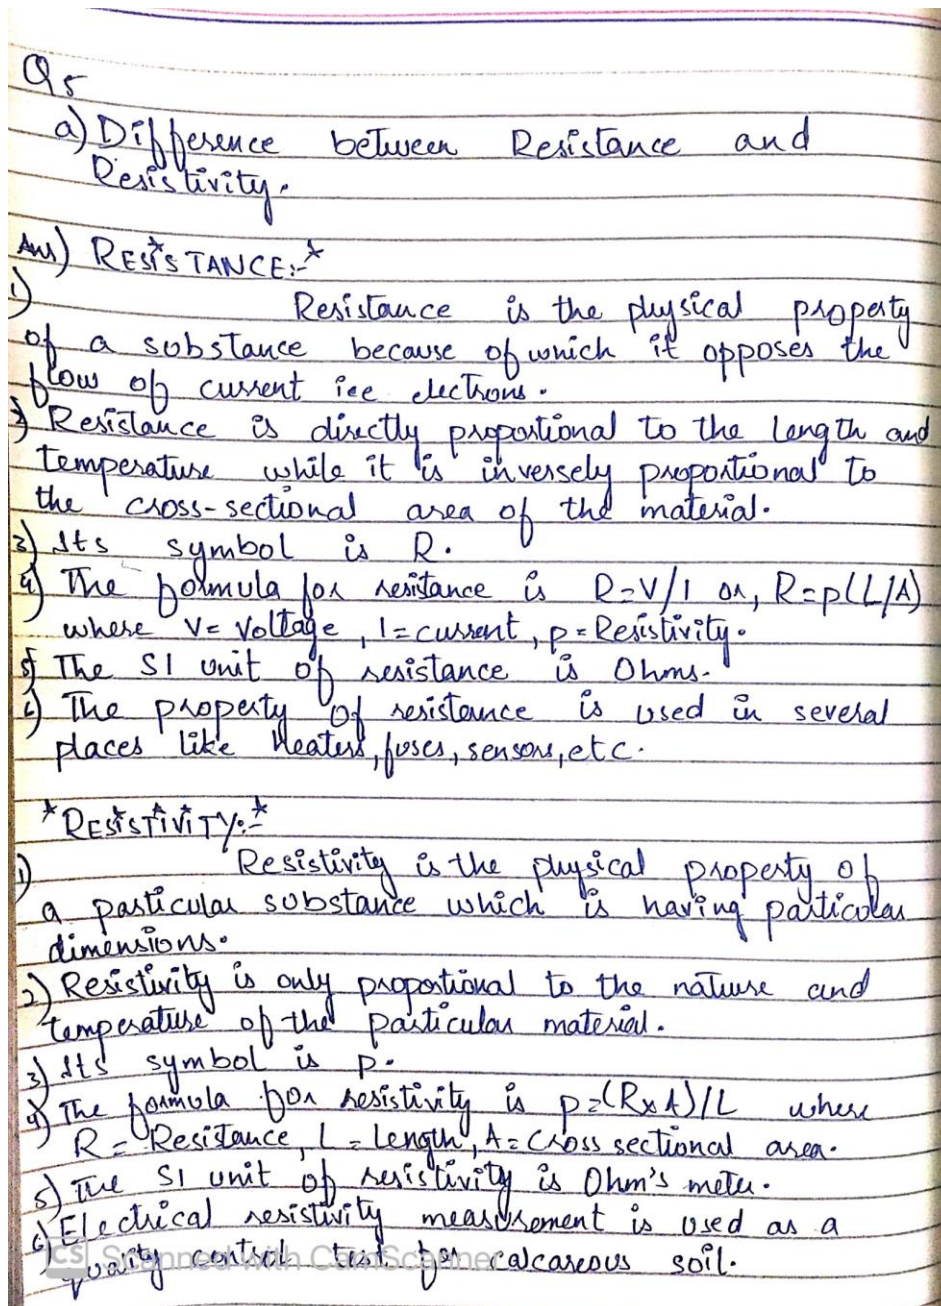 Q5
a) Difference between Resistance and
Resistivity.
Ans) RESISTANCE:-*
1)
Resistance is the physical property
of a substance because of which it opposes the
flow of current iee electrons.
Resistance is directly proportional to the length and
temperature while it is inversely proportional to
the cross-sectional area of the material.
3) Its symbol is R.
4) The formula for resistance is R=V/I or, R=p(L/A)
where V= Voltage, I=current, p=Resistivity.
5) The SI unit of resistance is Ohms.
6) The property of resistance is used in several
places like Heaters, fuses, sensors, etc.
*RESISTIVITY:-*
1)
Resistivity is the physical property of
a particular substance which is having particular
dimensions.
2) Resistivity is only proportional to the nature and
temperature of the particular material.
3) Its symbol is p.
4) The formula for resistivity is p=(RxA)/L where
R = Resistance, L = length, A = Cross sectional area.
5) The SI unit of resistivity is Ohm's meter.
6) Electrical resistivity measurement is used as a
quality control test for calcareous soil.
CS Scanned with CamScanner